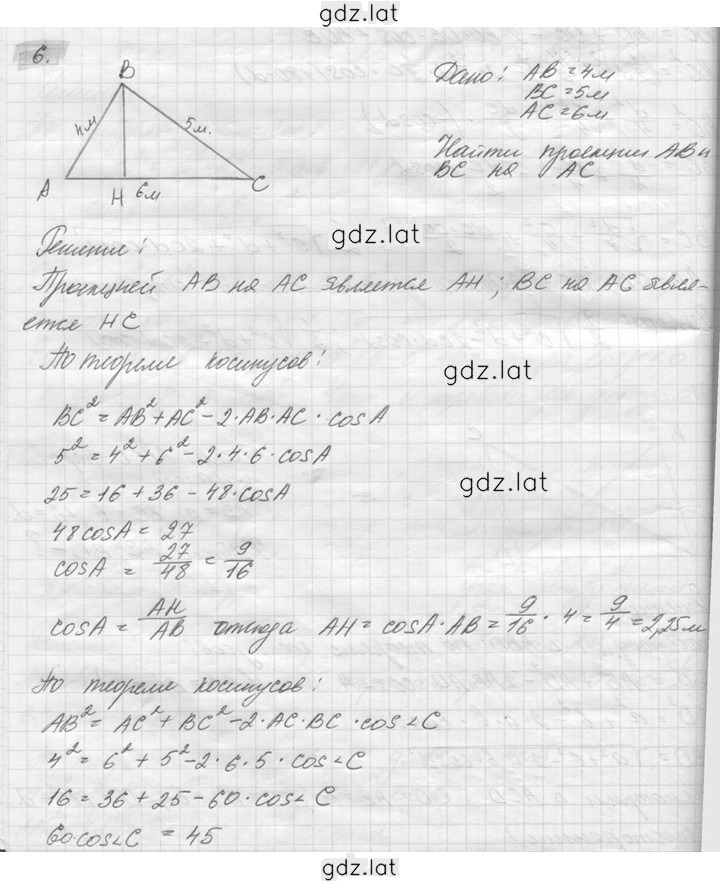 gdz.lat
6.
B
4м
5м.
A
H
6м
C
Дано: AB = 4м
BC = 5м
AC = 6м
Найти проекции AB и
BC на AC
gdz.lat
Решение:
Проекцией AB на AC является AH; BC на AC явля-
ется HC
По теореме косинусов:
gdz.lat
BC² = AB² + AC² - 2·AB·AC · cosA
5² = 4² + 6² - 2·4·6·cosA
25 = 16 + 36 - 48·cosA
gdz.lat
48cosA = 27
cosA = 27/48 = 9/16
cosA = AH/AB отсюда AH = cosA·AB = 9/16 · 4 = 9/4 = 2,25м
gdz.lat
По теореме косинусов:
AB² = AC² + BC² - 2·AC·BC · cos∠C
4² = 6² + 5² - 2·6·5 · cos∠C
16 = 36 + 25 - 60·cos∠C
60·cos∠C = 45
gdz.lat